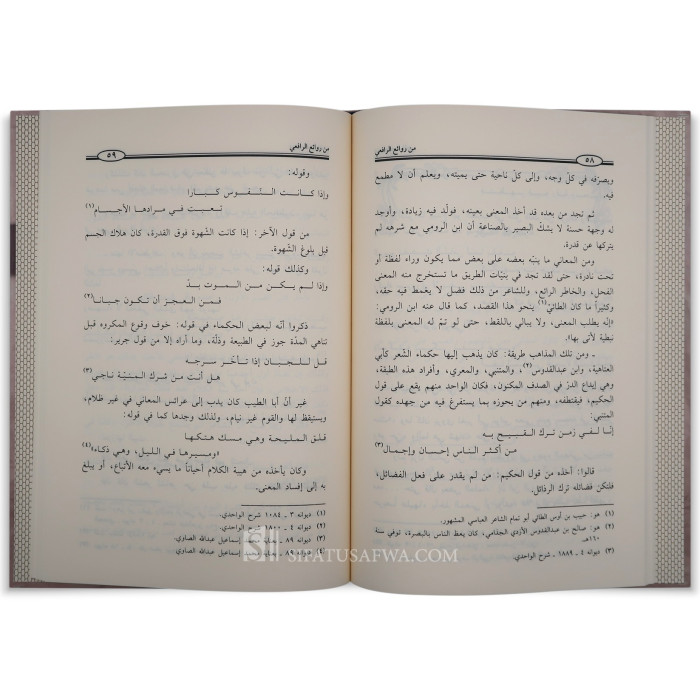 من روائع الرافعي
٥٨
ويصرّفه في كلّ وجه، وإلى كلّ ناحية حتى يميته، ويعلم أن لا مطمع
فيه.
ثم نجد من بعده قد أخذ المعنى بعينه، فولّد فيه زيادة، وأوجد
له وجهة حسنة لا يشكّ البصير بالصناعة أن ابن الرومي مع شرهه لم
يتركها عن قدرة.
ومن المعاني ما ينبّه بعضه على بعض مما يكون وراء لفظة أو
تحت نادرة، حتى لقد نجد في بنيّات الطريق ما نستخرج منه المعنى
الفحل، والخاطر الرائع، وللشاعر من ذلك فضل لا يغمط فيه حقه،
وكثيراً ما كان الطائيّ(١) ينحو هذا القصد، كما قال عنه ابن الرومي:
«إنّه يطلب المعنى، ولا يبالي باللفظ، حتى لو تمّ له المعنى بلفظة
نبطية لأتى بها».
ـ ومن تلك المذاهب طريقة: كان يذهب إليها حكماء الشّعر كأبي
العتاهية، وابن عبدالقدوس(٢)، والمتنبي، والمعري، وأفراد هذه الطبقة،
وهي إيداع الدرّ في الصدف المكنون، فكان الواحد منهم يقع على قول
الحكيم، فيقتطفه، ومنهم من يحوزه بما يستفرغ فيه من جهده كقول
المتنبي:
إنّا لفي زمن ترك القبيح به
من أكثر الناس إحسان وإجمال(٣)
قالوا: أخذه من قول الحكيم: من لم يقدر على فعل الفضائل،
فلتكن فضائله ترك الرذائل.
(١) هو: حبيب بن أوس الطائي أبو تمام الشاعر العباسي المشهور.
(٢) هو: صالح بن عبدالقدوس الأزدي الجذامي، كان يعظ الناس بالبصرة، توفي سنة
١٦٠هـ.
(٣) ديوانه ٤ ـ ١٨٨٩ ـ شرح الواحدي.
من روائع الرافعي
٥٩
وقوله:
وإذا كانت النفوس كبارا
تعبت في مرادها الأجسام(١)
من قول الآخر: إذا كانت الشهوة فوق القدرة، كان هلاك الجسم
قبل بلوغ الشّهوة.
وكذلك قوله:
وإذا لم يكن من الموت بدّ
فمن العجز أن تكون جبانا(٢)
ذكروا أنّه لبعض الحكماء في قوله: خوف وقوع المكروه قبل
تناهي المدّة جور في الطبيعة وذلّة، وما أراه إلا من قول جرير:
قل للجبان إذا تأخّر سرجه
هل أنت من شرك المنيّة ناجي(٣)
غير أنّ أبا الطيب كان يدب إلى عرائس المعاني في غير ظلام،
ويستيقظ لها والقوم غير نيام، ولذلك وجدها كما في قوله:
قلق المليحة وهي مسك هتكها
«ومسيرها في الليل، وهي ذكاء»(٤)
وكان يأخذه من هيبة الكلام أحياناً ما يسيء معه الأتباع، أو يبلغ
به إلى إفساد المعنى.
(١) ديوانه ٣ ـ ١٠٨٤ شرح الواحدي.
(٢) ديوانه ٤ ـ ١٨٠٠ ـ شرح الواحدي.
(٣) ديوانه ٨٩ ـ إسماعيل عبدالله الصاوي.
(٤) ديوانه ٨٩ إسماعيل عبدالله الصاوي
SIFATUSAFWA.COM